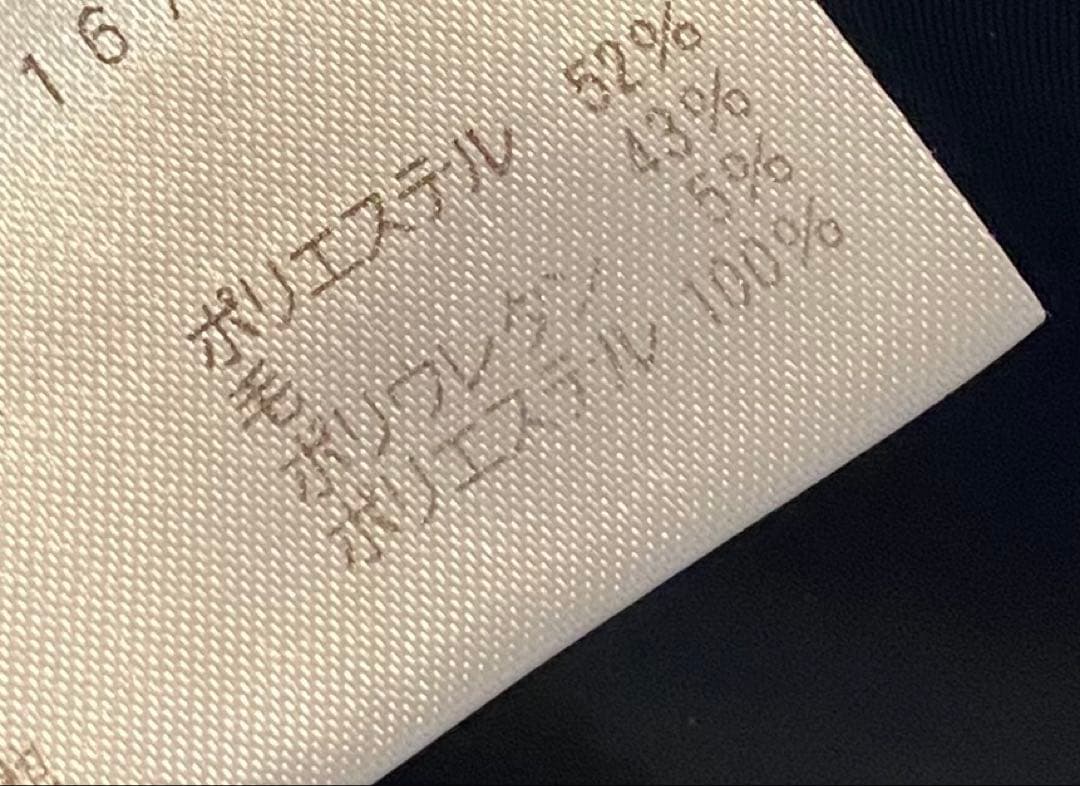 16
ポリエステル 52%
毛 43%
ポリウレタン 5%
ポリエステル 100%